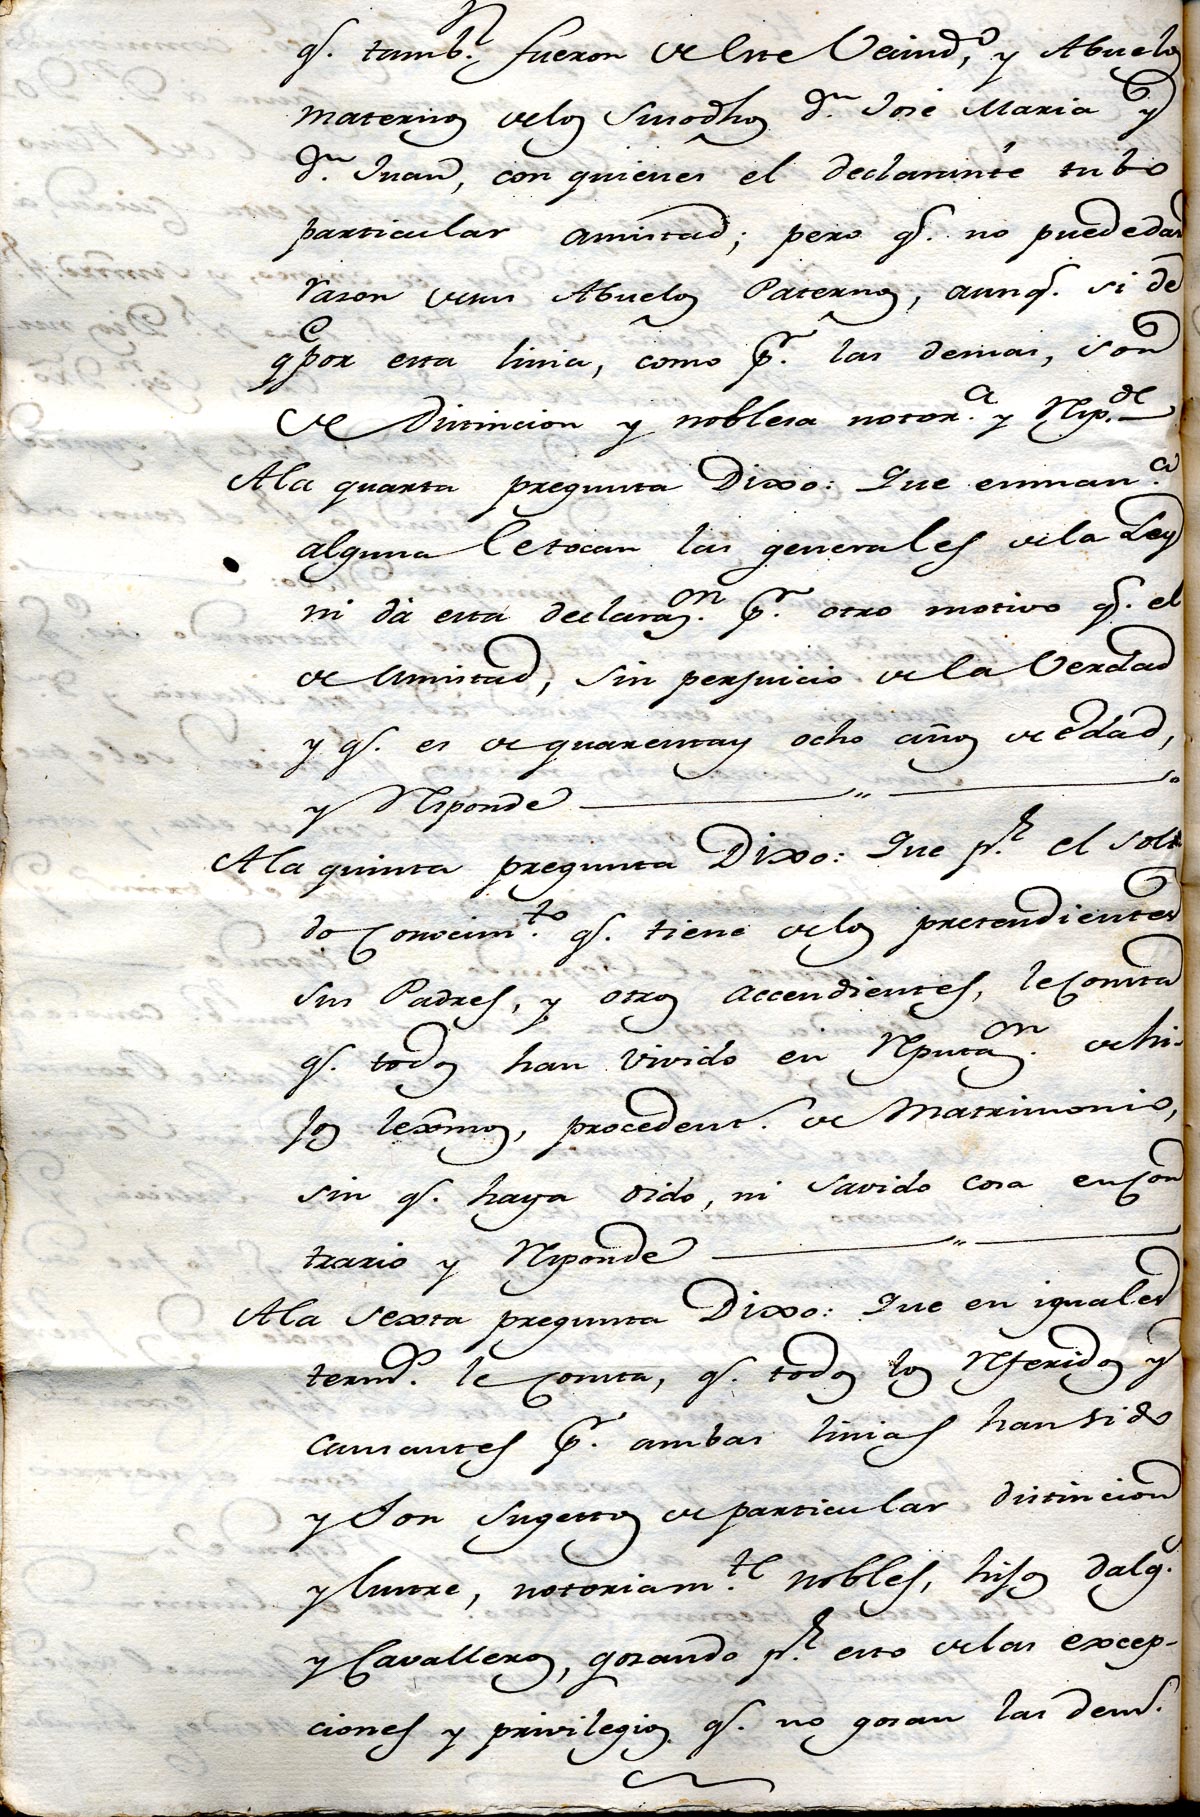 q.e tamb.n fueron de este Vecind.o, y Abuelos
maternos de los Susodhos D.n José Maria y
D.n Juan, con quienes el declarante tubo
particular amistad; pero q.e no puede dar
rason de sus Abuelos Paternos, aunq.e si de
q.e por esta linia, como p.r las demas, son
de distincion y noblesa notor.a y Resp.de
A la quarta pregunta Dixo: Que en man.a
alguna le tocan las generales de la Ley
ni dá esta declaraz.on p.r otro motivo q.e el
de Amistad, sin perjuicio de la Verdad
y q.e es de quarenta y ocho años de edad,
y Responde
A la quinta pregunta Dixo: Que p.r el soli-
do Conocim.to q.e tiene de los pretendientes
sus Padres, y otros Accendientes, le Consta
q.e todos han vivido en Reputaz.on de hi-
jos lexmos, procedent.s de Matrimonio,
sin q.e haya oido, ni savido cosa en Con
trario y Responde
A la sexta pregunta Dixo: Que en iguales
termd.s le Consta, q.e todos los Referidos y
causantes p.r ambas linias han sido
y Son sugettos de particular distincion
y lustre, notoriam.te nobles, hijos dalg.o
y Cavalleros, gosando p.r esto de las excep-
ciones y privilegios q.e no gosan las dem.s